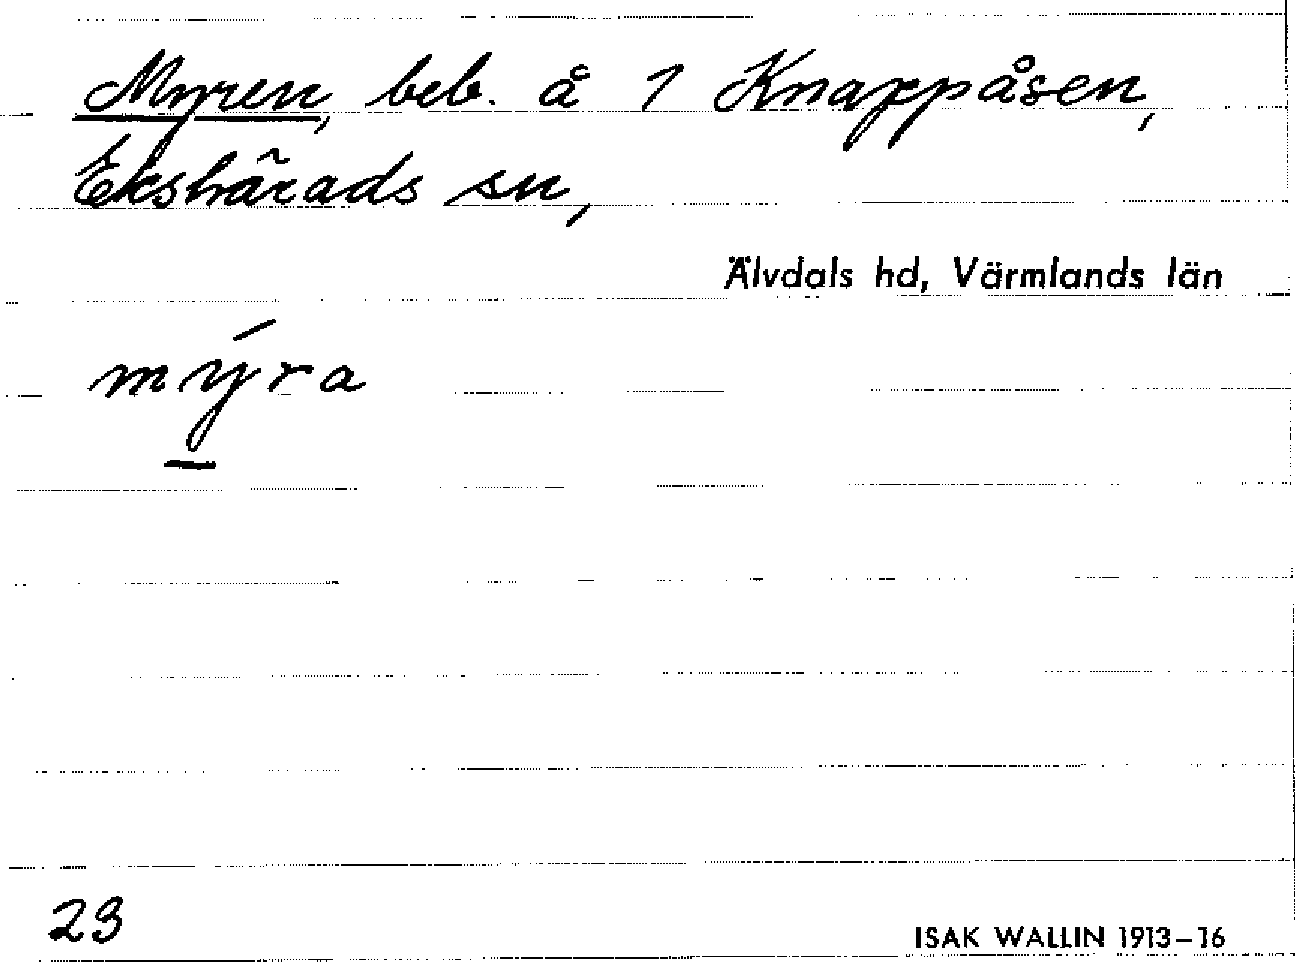 Myren, beb. å 1 Knappåsen,
Ekshärads sn,
Älvdals hd, Värmlands län
mýra
23
ISAK WALLIN 1913–16